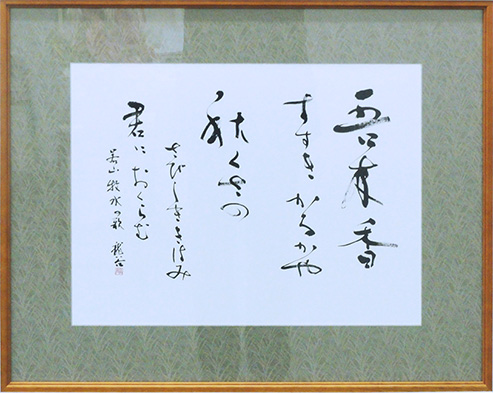 吾木香
すすきかるかや
秋くさの
さびしききはみ
君におくらむ
若山牧水の歌